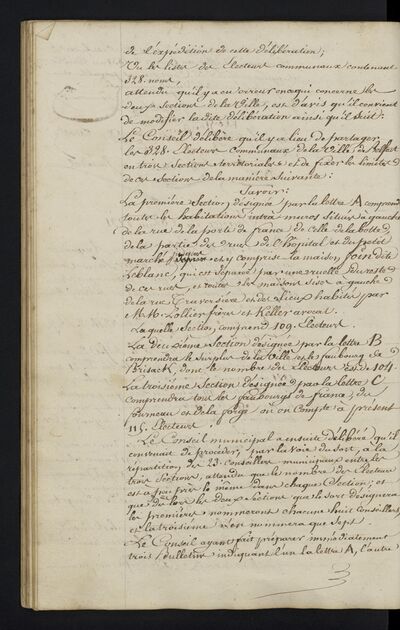 de l'expédition de cette délibération;
Vu les listes des Electeurs communaux contenant
328. noms,
attendu qu'il y a eu erreur en ce qui concerne les
deux sections de la Ville, est d'avis qu'il convient
de modifier la dite délibération ainsi qu'il suit:
Le Conseil délibère qu'il y a lieu de partager
les 328. Electeurs Communaux de la Ville de Belfort
en trois Sections territoriales et de fixer les limites
de ces Sections de la manière suivante:
Savoir:
La première Section, désignée par la lettre A comprend
toutes les habitations intra muros situées à gauche
de la rue de la porte de france, de celle de la botte,
de la partie des rues de l'hôpital et du petit
marché, jusques et y comprise la maison
Leblanc, qui est séparée par une ruelle du reste
de ces rues, et toutes les maisons sises à gauche
de la rue Traversière et des lieux habités par
M.M. Lollier frères et Keller avocat.
Laquelle Section, comprend 109. Electeurs.
La deuxième Section désignée par la lettre B
comprendra le surplus de la Ville et le faubourg de
Brisack, dont le nombre des Electeurs est de 104.
La troisième Section désignée par la lettre C
comprendra tous les faubourgs de france, du
fourneau et de la forge où on compte à présent
115. Electeurs.
Le Conseil municipal a ensuite délibéré qu'il
convenait de procéder, par la voie du sort, à la
répartition des 23. Conseillers municipaux entre les
trois Sections, attendu que le nombre des Electeurs
est à peu près le même dans chaque Section; et
que dès lors les deux Sections que le sort désignera
les premières nommeront chacune huit Conseillers,
et la troisième n'en nommera que sept.
Le Conseil ayant fait préparer immédiatement
trois bulletins indiquant l'un la lettre A, l'autre